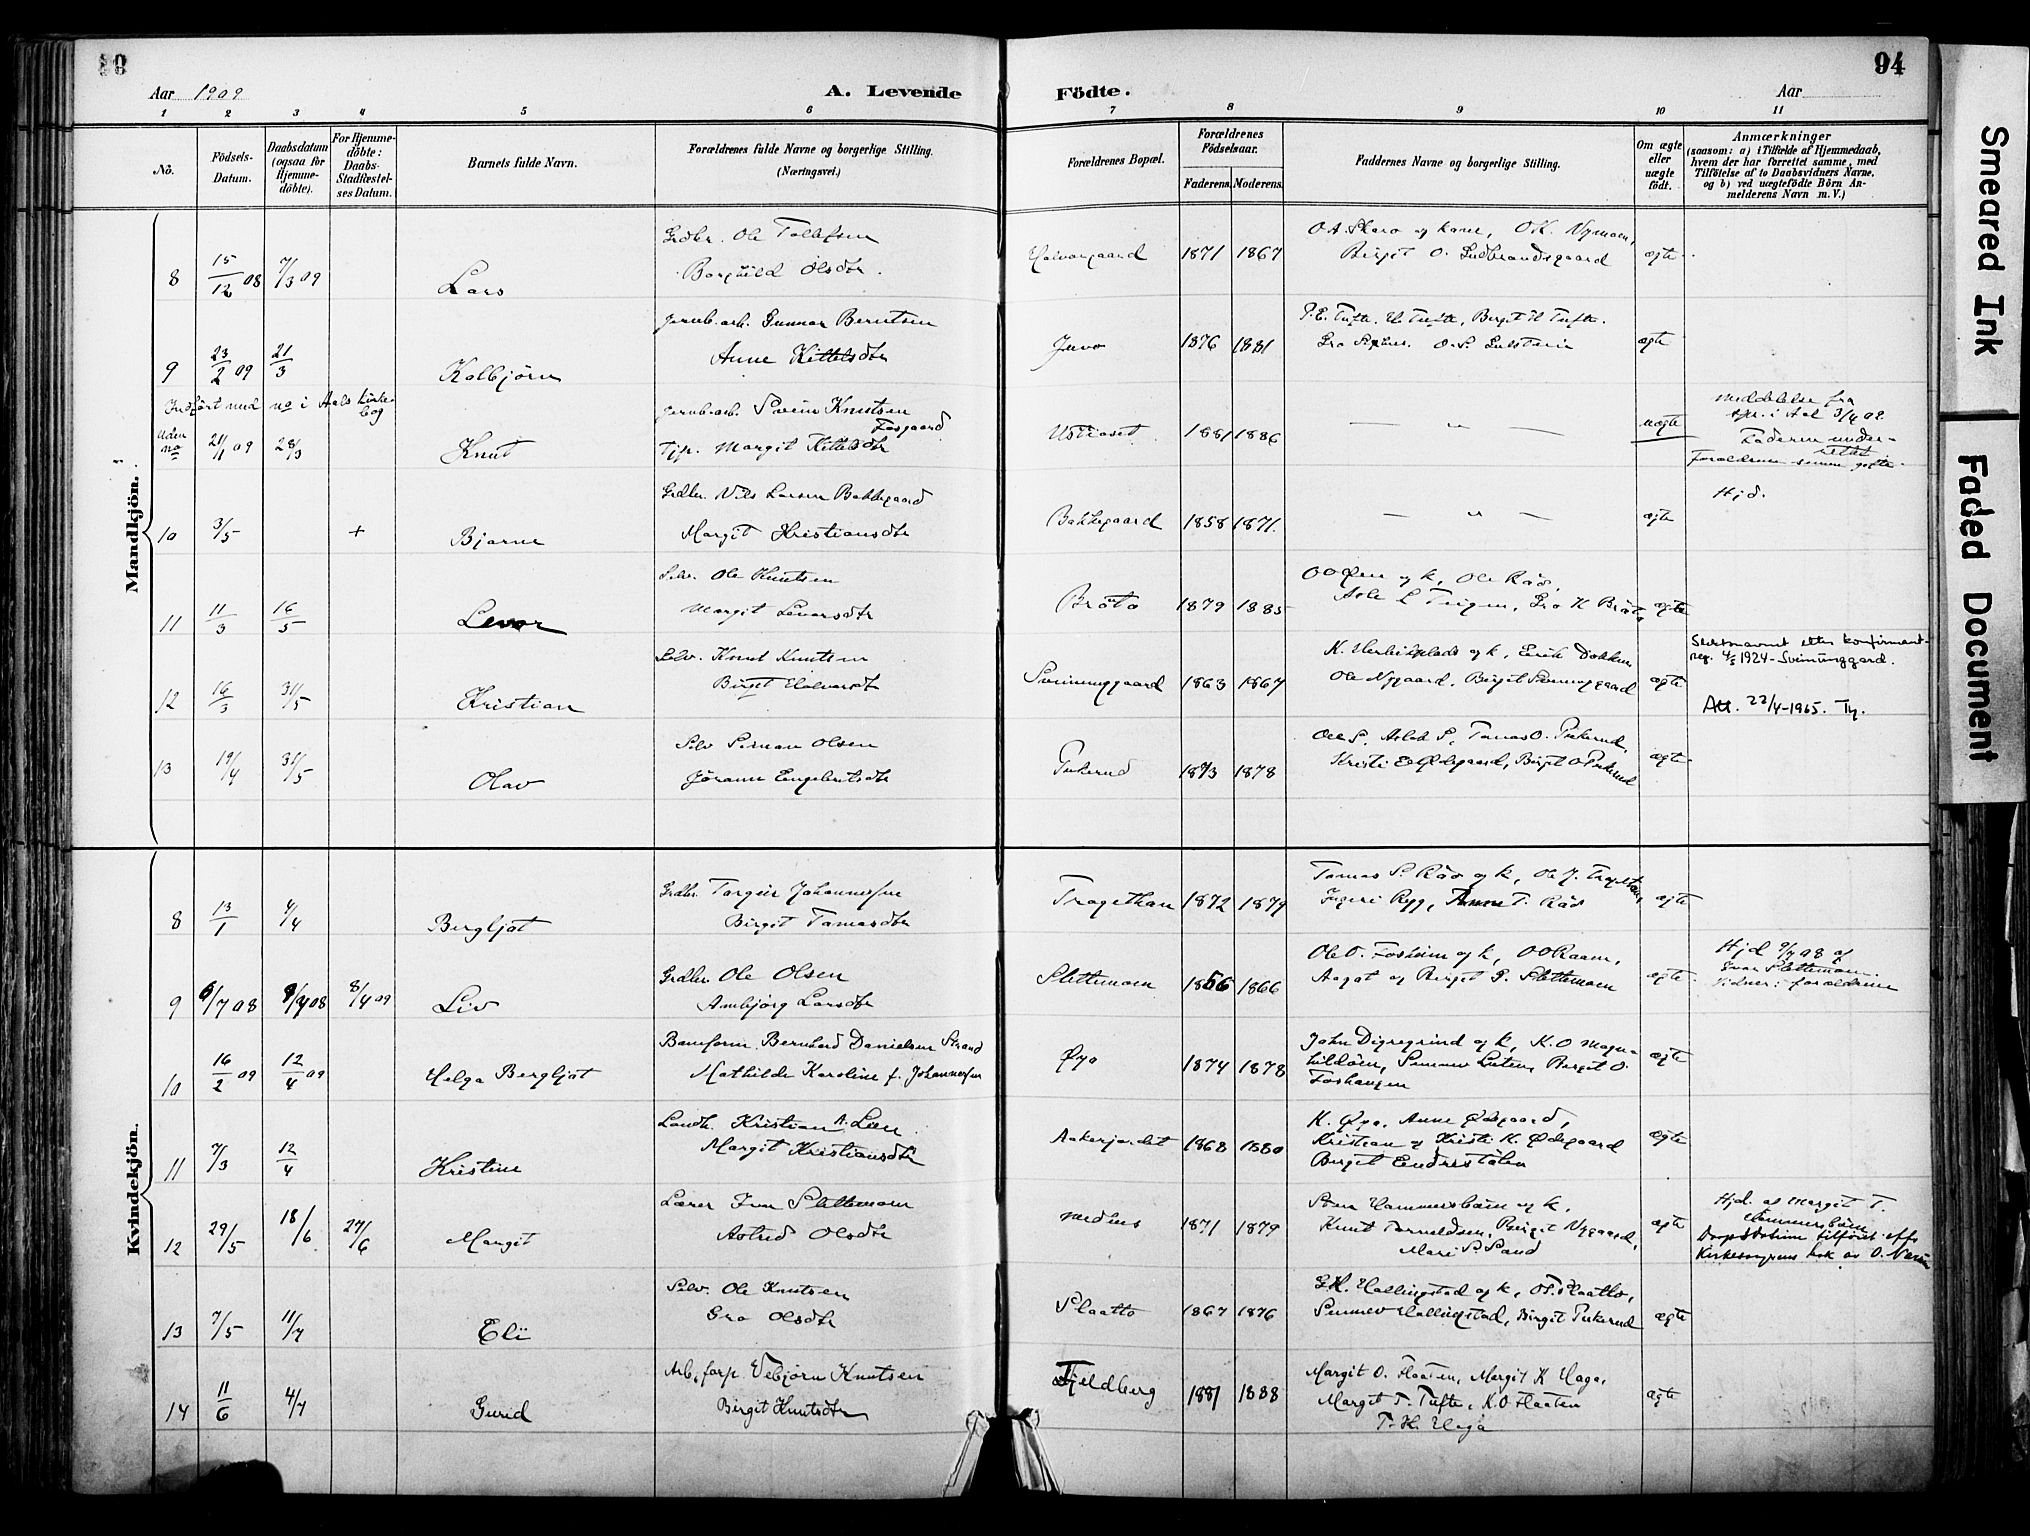 94
Aar 1909
A. Levende
Födte.
Aar
1 2 3 4 5 6 7 8 9 10 11
No.
Födsels-Datum.
Daabsdatum (ogsaa for Hjemmedöbte).
For Hjemmedöbte: Daabs-Stadfæstelses Datum.
Barnets fulde Navn.
Forældrenes fulde Navne og borgerlige Stilling.
(Næringsvei.)
Forældrenes Bopæl.
Forældrenes Födselsaar.
Faderens. Moderens.
Faddernes Navne og borgerlige Stilling.
Om ægte eller uægte födt.
Anmærkninger
(saasom: a) i Tilfælde af Hjemmedaab, hvem der har forrettet samme, med Tilföielse af to Daabsvidners Navne, og b) ved uægtefödte Börn Anmelderens Navn m. V.)
Mandkjön.
8 15/12 08 7/3 09 Lars
Grdbr. Ole Tollefsen
Borghild Olsdtr.
Halvorgaard 1871 1867
O. A. Skaro og kone, O K. Nymoen,
Birgit O. Gudbrandsgaard
ægte
9 23/2 09 21/3 Kolbjörn
Jernb.arb. Gunnar Berntsen
Anne Kittelsdtr
1876 1881
P. E. Tufte. H. Tufte, Birgit H Tufte.
ægte
Indfört med no i Aals Kirkebog
Uden no 21/1 09 28/3 Knut
Jernb.arb. Svein Knutsen
Fosgaard
Tjp. Margit Kittelsdtr
Ustaoset 1881 1886
— " —
uægte
Meddelelse fra
spr. i Aal 3/4 09.
Faderen underrettet
Forældrene senere gifte.
10 3/5 + Bjarne
Grdbr. Nils Larsen Bakkegaard
Margit Kristiansdtr
Bakkegaard 1858 1871.
— " —
ægte
Hjd.
11 11/3 16/5 Levor
Selv. Ole Knutsen
Margit Levorsdtr
Bröto 1879 1885
Ole Räo,
Asle L Teigen, Gro K Bröto
ægte
12 16/3 31/5 Kristian
Selv. Knut Knutsen
Birgit Halvorsdtr
Sveinunggaard 1863 1867
K. Verbikplads og k, Eirik Dokken
Ole Nygaard. Birgit Sveinunggaard
ægte
Slektsnavnet etter konfirmant-
reg. 4/5 1924 - Sveinunggard.
Att. 22/4-1965. Ty.
13 19/4 31/5 Olav
Selv Simon Olsen
Jörann Engebretsdtr
Pukerud 1873 1878
Ole S, Aslak S, Tomas O. Pukerud,
Kristi E Ødegaard, Birgit O Pukerud
ægte
Kvindekjön.
8 13/1 4/4 Bergljot
Grdbr. Torgeir Johannessen
Birgit Tomasdtr
Tragethon 1872 1879
Tomas S. Räo og k, Ole J. Trageton,
Ingeri Ryg, Anne T. Räo
ægte
9 6/7 08 9/7 08 8/4 09 Liv
Grdbr. Ole Olsen
Ambjörg Larsdtr
Slettemoen 1866 1866
Ole O. Fosheim og k, O O Raaen,
Aagot og Birgit P. Slettemoen
ægte
Hjd 9/7 08 af
Ivar Slettemoen.
Vidner: forældrene
10 16/2 09 12/4 09 Helga Bergljot
Baneform. Bernhard Danielsen Strand
Mathilde Karoline f. Johannessen
Øyo 1874 1878
John Digregrind og k, K. O Magnehildöen, Birgit O.
Foshaugen
ægte
11 7/3 12/4 Kristine
Landh. Kristian A. Lien
Margit Kristiansdtr
Aakerjordet 1868 1880
K. Øyo, Anne Ødegaard,
Kristian og Kristi K. Ødegaard
Birgit Endrestölen
ægte
12 29/5 18/6 27/6 Margit
Lærer Ivar Slettemoen
Astrid Olsdtr
Medhus 1871 1879
Sven Hammersböen og k,
Knut Tormodsen, Birgit Nygaard,
Mari S. Sand
ægte
Hjd. af Margit T.
Hammersböen
Daapsdatoen tilföiet efter
Kirkesangerens bok av O.
13 7/5 11/7 Eli
Selv. Ole Knutsen
Gro Olsdtr
Slaatto 1867 1876
G. H. Hallingstad og k, O. S. Slaatto,
Sunnev Hallingstad, Birgit Pukerud
ægte
14 11/6 4/7 Gurid
Arb., forp. Vebjörn Knutsen
Birgit Knutsdtr
Fjeldberg 1881 1888
Margit O. Flaaten, Margit K Haga,
Margit T. Tufte, K. O Flaaten
T. H. Haga
ægte
Smeared Ink
Faded Document